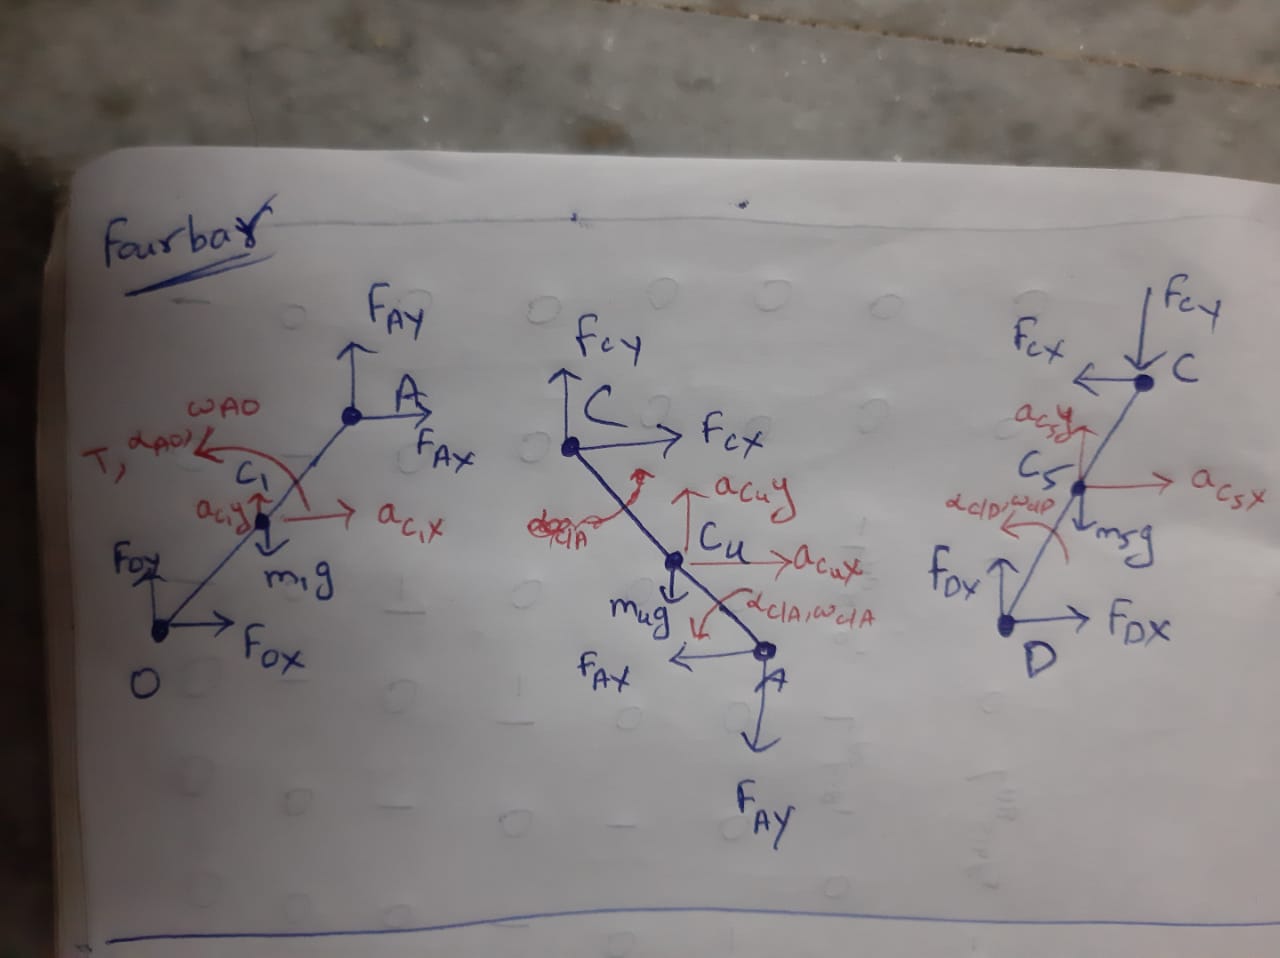 Fourbar
FAY
A
FAX
ωAO
T, αAO,
C1
aC1y
aC1x
m1g
FOY
FOX
O
FCY
C
FCX
aC4y
C4
aC4x
m4g
αC/A, ωC/A
FAX
A
FAY
FCY
FCX
C
aC5y
C5
aC5x
m5g
FDX
FDX
D